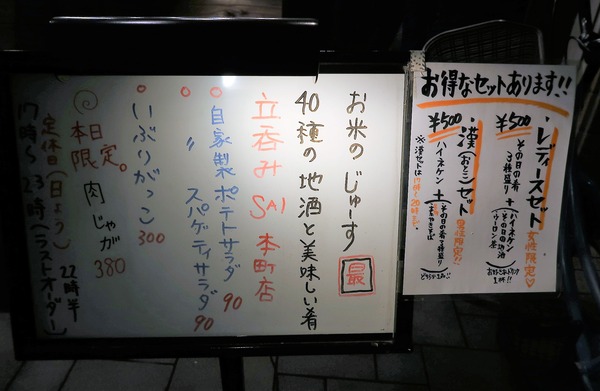 お米のじゅーす
最
40種の地酒と美味しい肴
立呑みSAI本町店
自家製ポテトサラダ 90
〃 スパゲティサラダ 90
いぶりがっこ 300
本日限定。肉じゃが 380
定休日(日よう) 22時半
17時～23時(ラストオーダー)
お得なセットあります!!
・レディースセット 女性限定♡
¥500
その日の肴3種盛り
+
ハイネケン
その日の地酒
ウーロン茶
お好きなドリンク1杯!!
・漢(おとこ)セット 男性限定!!
¥500
ハイネケン
+
その日の肴3種盛り
どちらか1つ!!